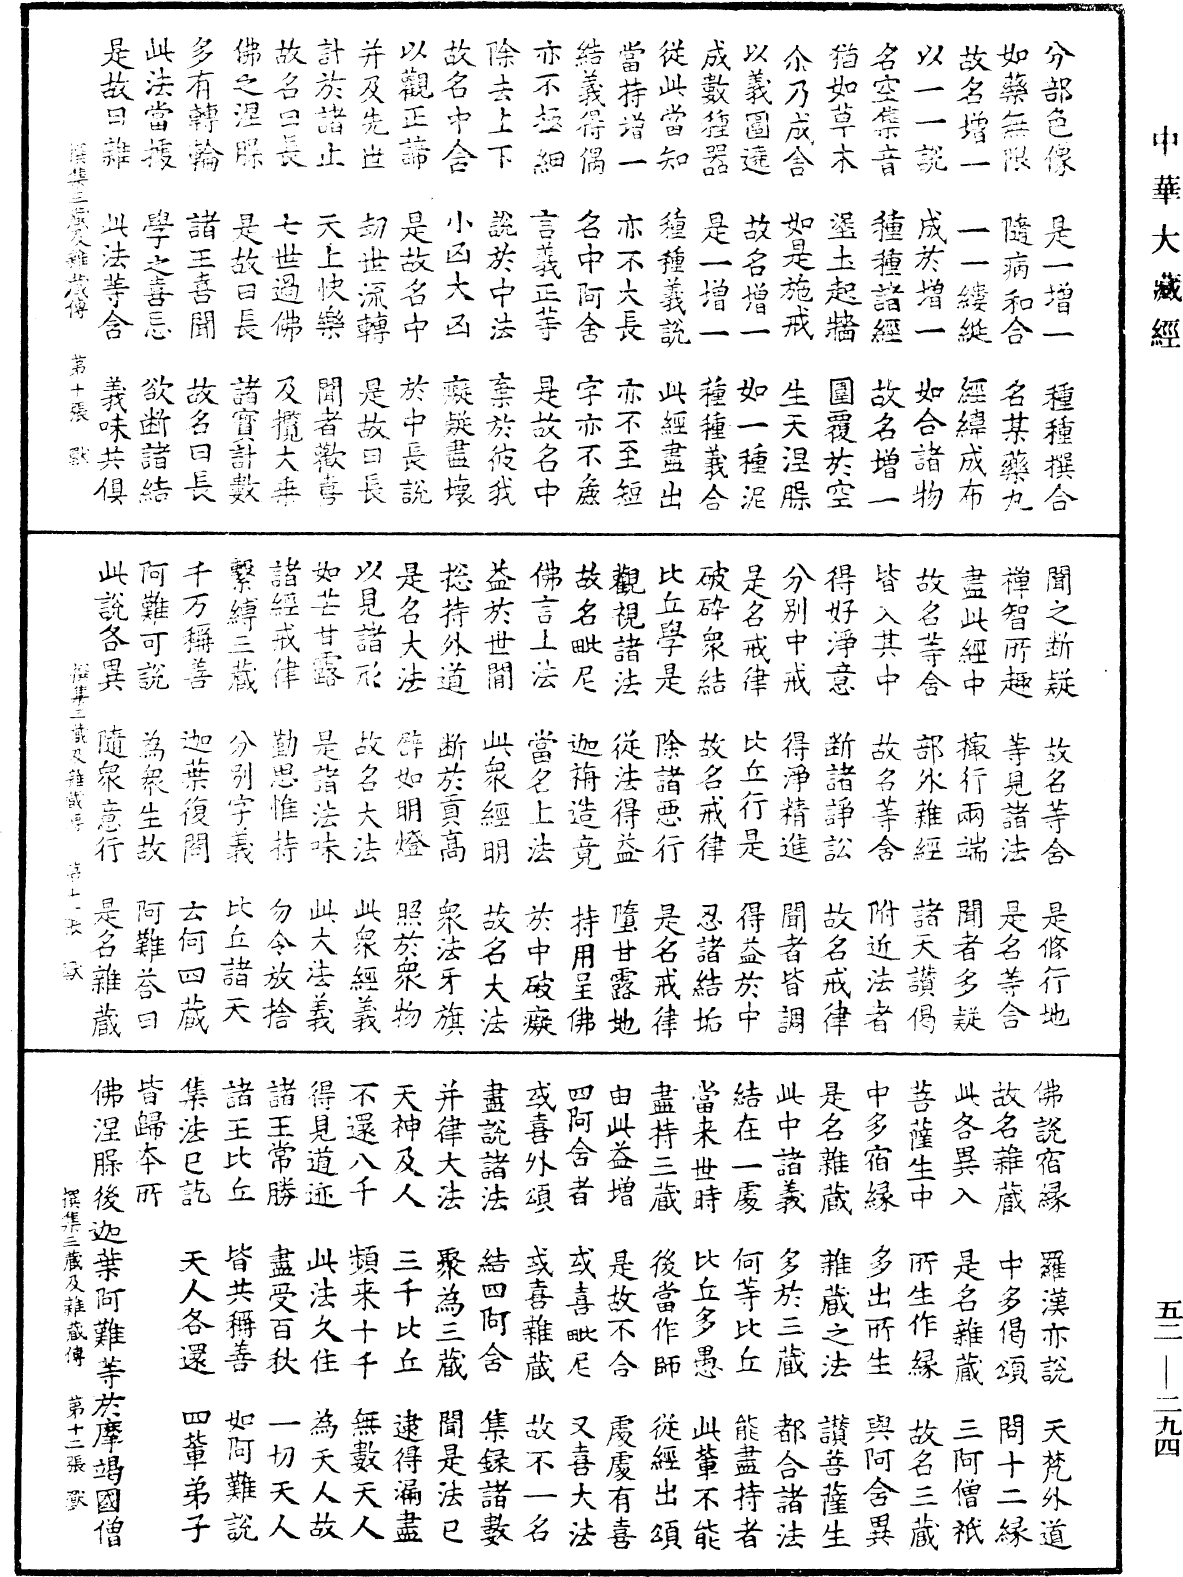 中華大藏經
分部色像　是一增一　種種撰合
如藥無限　隨病和合　名某藥丸
故名增一　一一縷綖　經緯成布
以一一說　成於增一　如合諸物
名空集音　種種諸經　故名增一
猶如草木　墼土起牆　圍覆於空
尒乃成舍　如是施戒　生天涅槃
以義圍遶　故名增一　如一種泥
成數種器　是一增一　種種義合
從此當知　種種義說　此經盡出
當持增一　亦不大長　亦不至短
結義得偶　名中阿舍　字亦不麁
亦不極細　言義正等　是故名中
除去上下　說於中法　棄於彼我
故名中含　小凶大凶　癡疑盡壞
以觀正諦　是故名中　於中長說
并及先世　劫世流轉　是故曰長
計於諸止　天上快樂　聞者歡喜
故名曰長　七世過佛　及攬大乘
佛之涅槃　是故曰長　諸寶計數
多有轉輪　諸王喜聞　故名曰長
此法當援　學之喜忘　欲斷諸結
是故曰雜　此法等含　義味共俱
撰集三藏及雜藏傳　第十張　獸
聞之斷疑　故名等含　是修行地
禪智所趣　等見諸法　是名等含
盡此經中　撮行兩端　聞者多疑
故名等含　部外雜經　諸天讚偈
皆入其中　故名等含　附近法者
得好淨意　斷諸諍訟　故名戒律
分別中戒　得淨精進　聞者皆調
是名戒律　比丘行是　得益於中
破碎衆結　故名戒律　忍諸結垢
比丘學是　除諸惡行　是名戒律
觀視諸法　從法得益　墮甘露地
故名毗尼　迦旃造竟　持用呈佛
佛言上法　當名上法　於中破癡
益於世間　此衆經明　故名大法
捴持外道　斷於貢高　衆法牙旗
是名大法　譬如明燈　照於衆物
以見諸形　故名大法　此衆經義
如芒甘露　是諸法味　此大法義
諸經戒律　勤思惟持　勿令放捨
繫縛三藏　分別字義　比丘諸天
千万稱善　迦葉復問　云何四藏
阿難可說　為衆生故　阿難荅曰
此說各異　隨衆意行　是名雜藏
撰集三藏及雜藏傳　第十一張　獸
佛說宿緣　羅漢亦說　天梵外道
故名雜藏　中多偈頌　問十二緣
此各異入　是名雜藏　三阿僧祇
菩薩生中　所生作緣　故名三藏
中多宿緣　多出所生　與阿含異
是名雜藏　雜藏之法　讚菩薩生
此中諸義　多於三藏　都合諸法
結在一處　何等比丘　能盡持者
當来世時　比丘多愚　此輩不能
盡持三藏　後當作師　從經出頌
由此益增　是故不合　處處有喜
四阿含者　或喜毗尼　又喜大法
或喜外頌　或喜雜藏　故不一名
盡說諸法　結四阿含　集録諸數
并律大法　聚為三藏　聞是法已
天神及人　三千比丘　逮得漏盡
不還八千　頻来十千　無數天人
得見道迹　此法久住　為天人故
諸王常勝　盡受百秋　一切天人
諸王比丘　皆共稱善　如阿難說
集法已訖　天人各還　四輩弟子
皆歸本所
佛涅槃後迦葉阿難等於摩竭國僧
撰集三藏及雜藏傳　第十二張　獸
五二—二九四